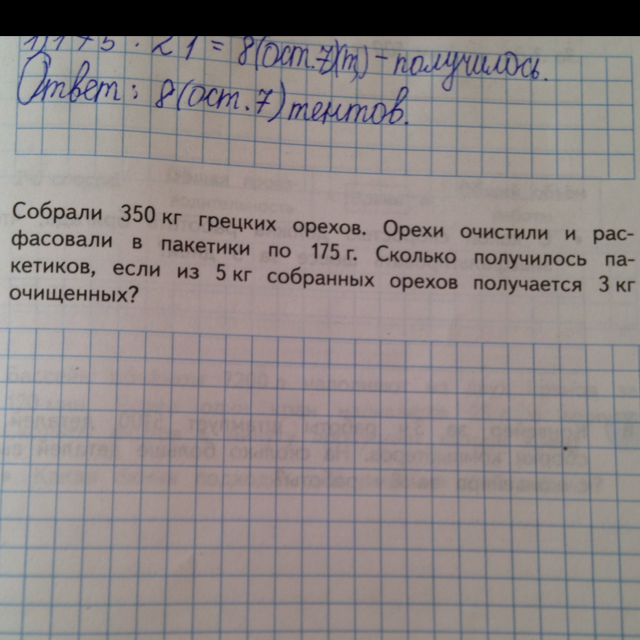 1) 175 : 21 = 8(ост.7)(т) - получилось.
Ответ: 8(ост.7) тентов.
Собрали 350 кг грецких орехов. Орехи очистили и рас-
фасовали в пакетики по 175 г. Сколько получилось па-
кетиков, если из 5 кг собранных орехов получается 3 кг
очищенных?